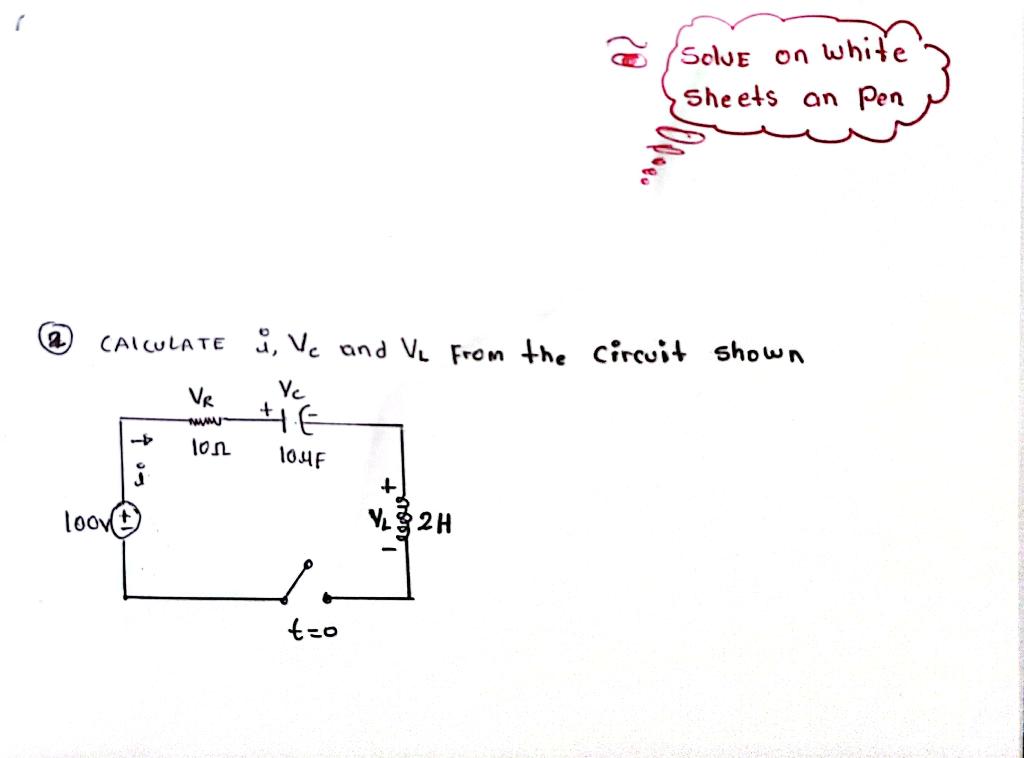 SolvE on white
Sheets an Pen
2 CAlCULATE i, Vc and VL From the circuit shown
VR
Vc
+ -
10Ω
10μF
i
+
100v
+
-
VL
2H
-
t=0